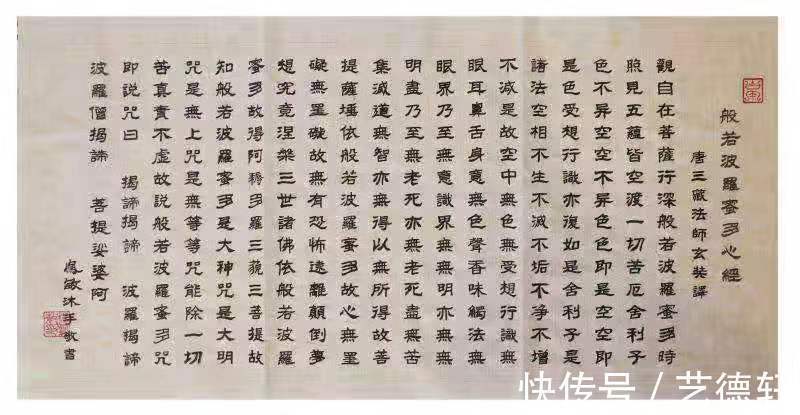 般若波羅蜜多心經
唐三藏法師玄奘譯
觀自在菩薩行深般若波羅蜜多時
照見五蘊皆空渡一切苦厄舍利子
色不异空空不异色色即是空空即
是色受想行識亦復如是舍利子是
諸法空相不生不滅不垢不淨不增
不減是故空中無色無受想行識無
眼耳鼻舌身意無色聲香味觸法無
眼界乃至無意識界無無明亦無無
明盡乃至無老死亦無老死盡無苦
集滅道無智亦無得以無所得故菩
提薩埵依般若波羅蜜多故心無罣
礙無罣礙故無有恐怖遠離顛倒夢
想究竟涅槃三世諸佛依般若波羅
蜜多故得阿耨多羅三藐三菩提故
知般若波羅蜜多是大神咒是大明
咒是無上咒是無等等咒能除一切
苦真實不虛故說般若波羅蜜多咒
即說咒曰 揭諦揭諦 波羅揭諦
波羅僧揭諦 菩提娑婆阿
沐手敬書
快传号／艺德轩